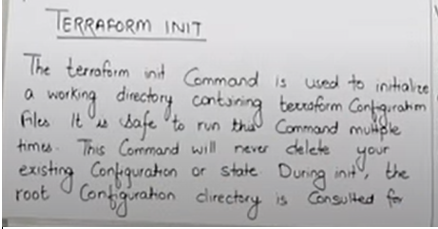 TERRAFORM INIT
The terraform init Command is used to initialize
a working directory containing terraform Configuration
Files. It is safe to run this Command multiple
times. This Command will never delete your
existing Configuration or state. During init, the
root Configuration directory is Consulted for